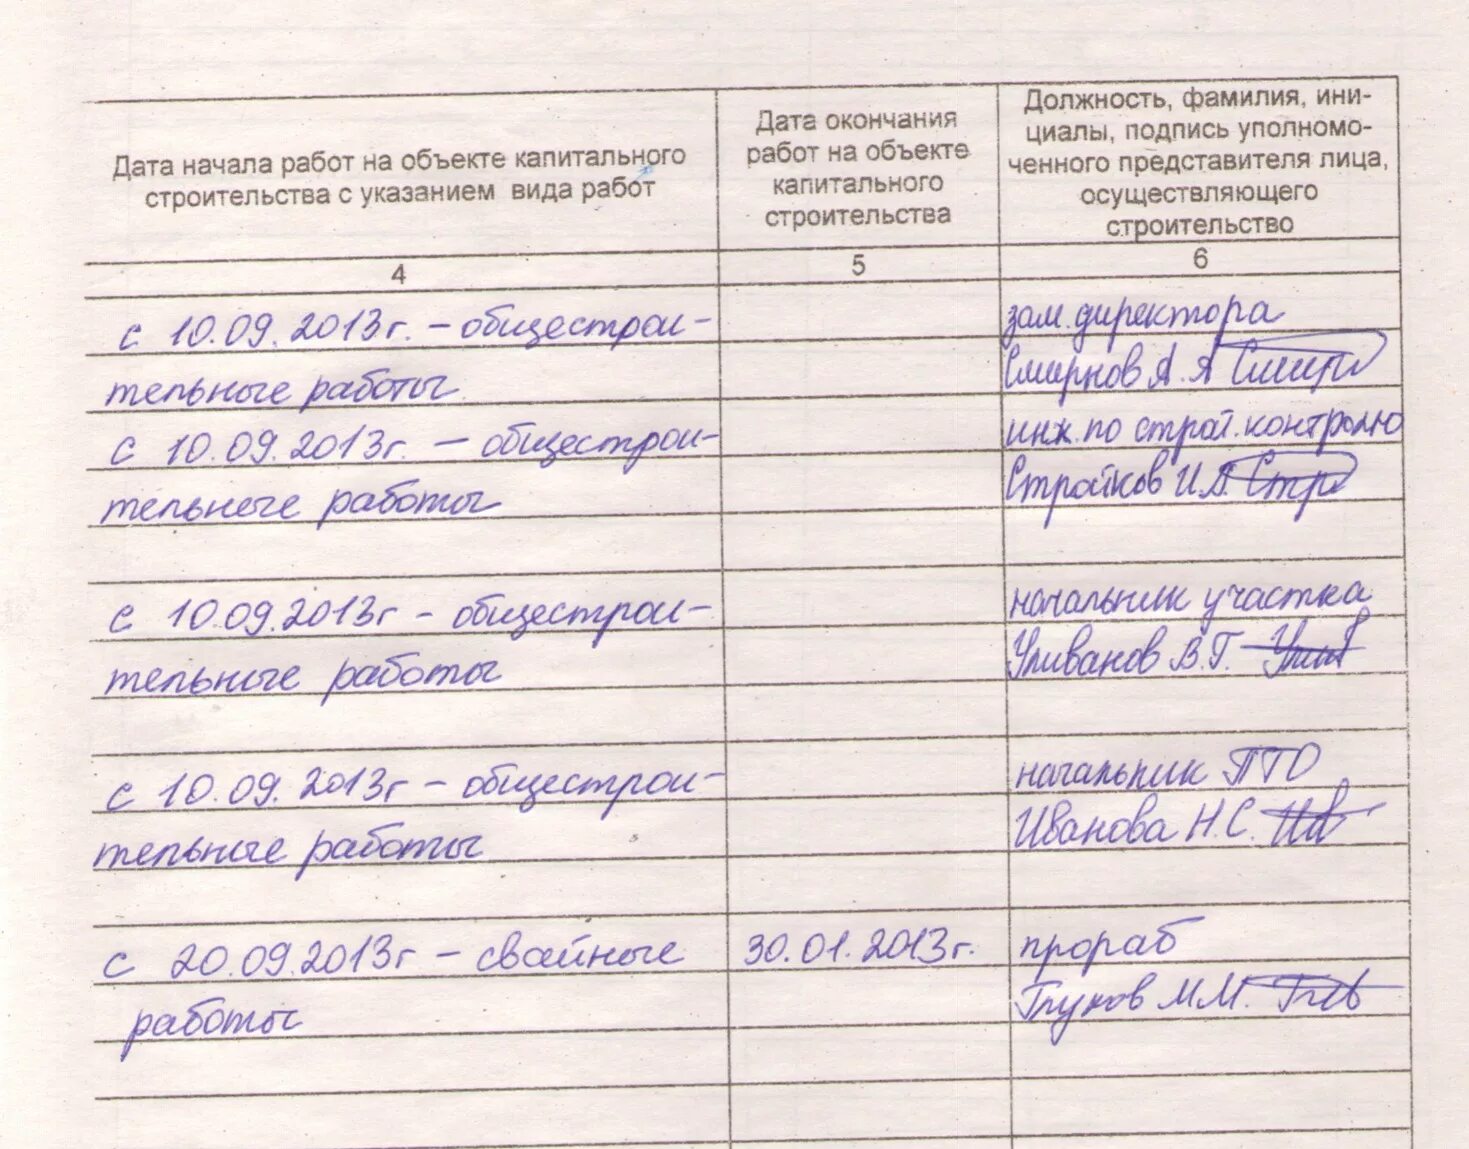 Дата начала работ на объекте капитального
строительства с указанием вида работ
Дата окончания
работ на объекте
капитального
строительства
Должность, фамилия, ини-
циалы, подпись уполномо-
ченного представителя лица,
осуществляющего
строительство
4
5
6
с 10.09.2013г. – общестрои-
тельные работы
зам. директора
Смирнов А.А Смир
с 10.09.2013г. – общестрои-
тельные работы
инж. по строй. контролю
Стройков И.А. Стр
с 10.09.2013г – общестрои-
тельные работы
начальник участка
Уливанов В.Г.
с 10.09.2013г – общестрои-
тельные работы
начальник ПТО
Иванова Н.С. Ив
с 20.09.2013г – свайные
работы
30.01.2013г.
прораб
М.М.